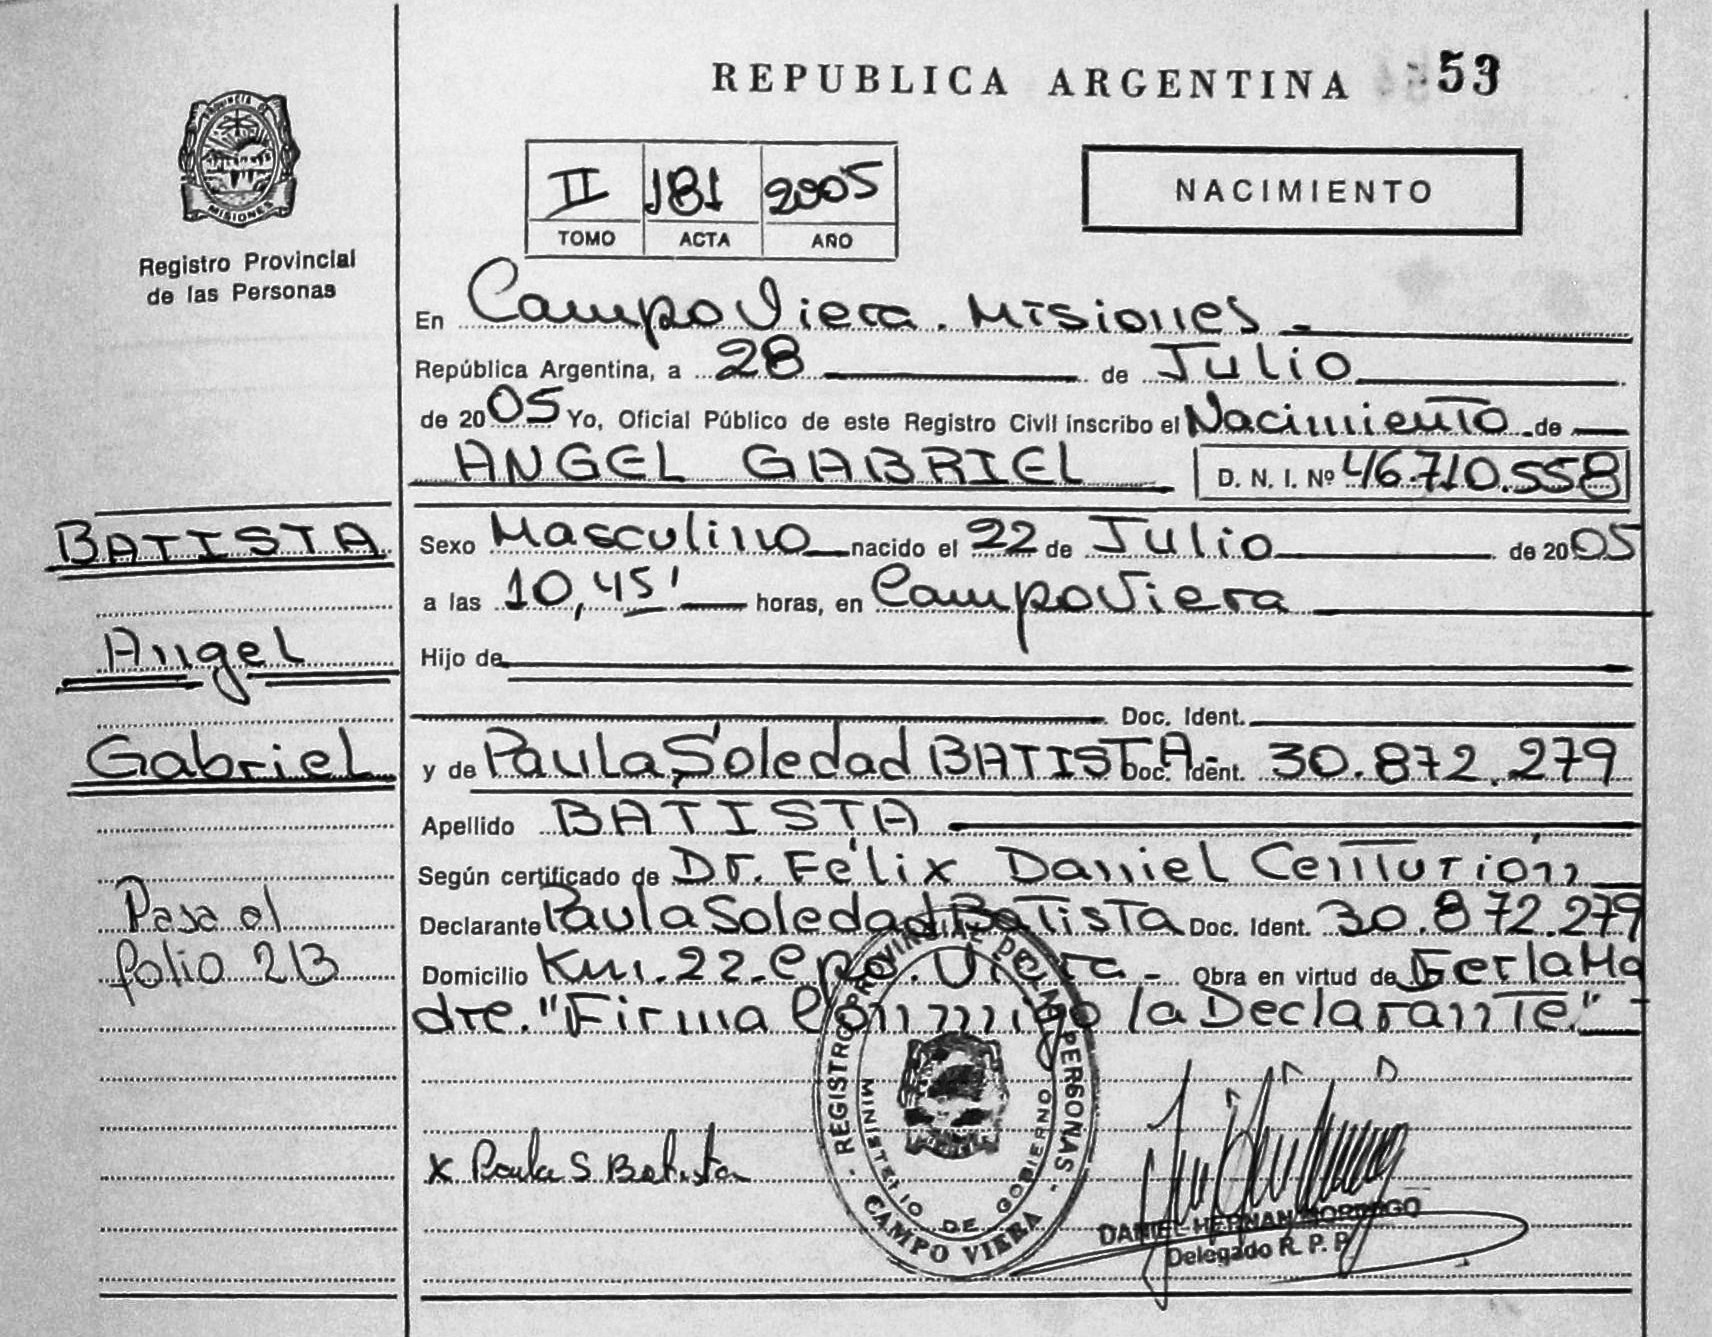 REPUBLICA ARGENTINA 53
PROVINCIA DE MISIONES
Registro Provincial
de las Personas
II 181 2005
TOMO ACTA AÑO
NACIMIENTO
En Campo Viera. Misiones -
República Argentina, a 28 de Julio
de 2005 Yo, Oficial Público de este Registro Civil inscribo el Nacimiento de
ANGEL GABRIEL D. N. I. Nº 46.710.558
BATISTA
Angel
Gabriel
Pasa al
folio 213
Sexo Masculino nacido el 22 de Julio de 2005
a las 10,45' horas, en Campo Viera
Hijo de
Doc. Ident.
y de Paula Soledad BATISTA- Doc. Ident. 30.872.279
Apellido BATISTA
Según certificado de Dr. Félix Daniel Centurión
Declarante Paula Soledad Batista Doc. Ident. 30.872.279
Domicilio Km. 22-Cpo. Viera- Obra en virtud de Ser la Ma
dre. "Firma Conmigo la Declarante."-
x Paula S Batista
REGISTRO PROVINCIAL DE LAS PERSONAS
MINISTERIO DE GOBIERNO
CAMPO VIERA
DANIEL HERNAN
Delegado R. P. P.